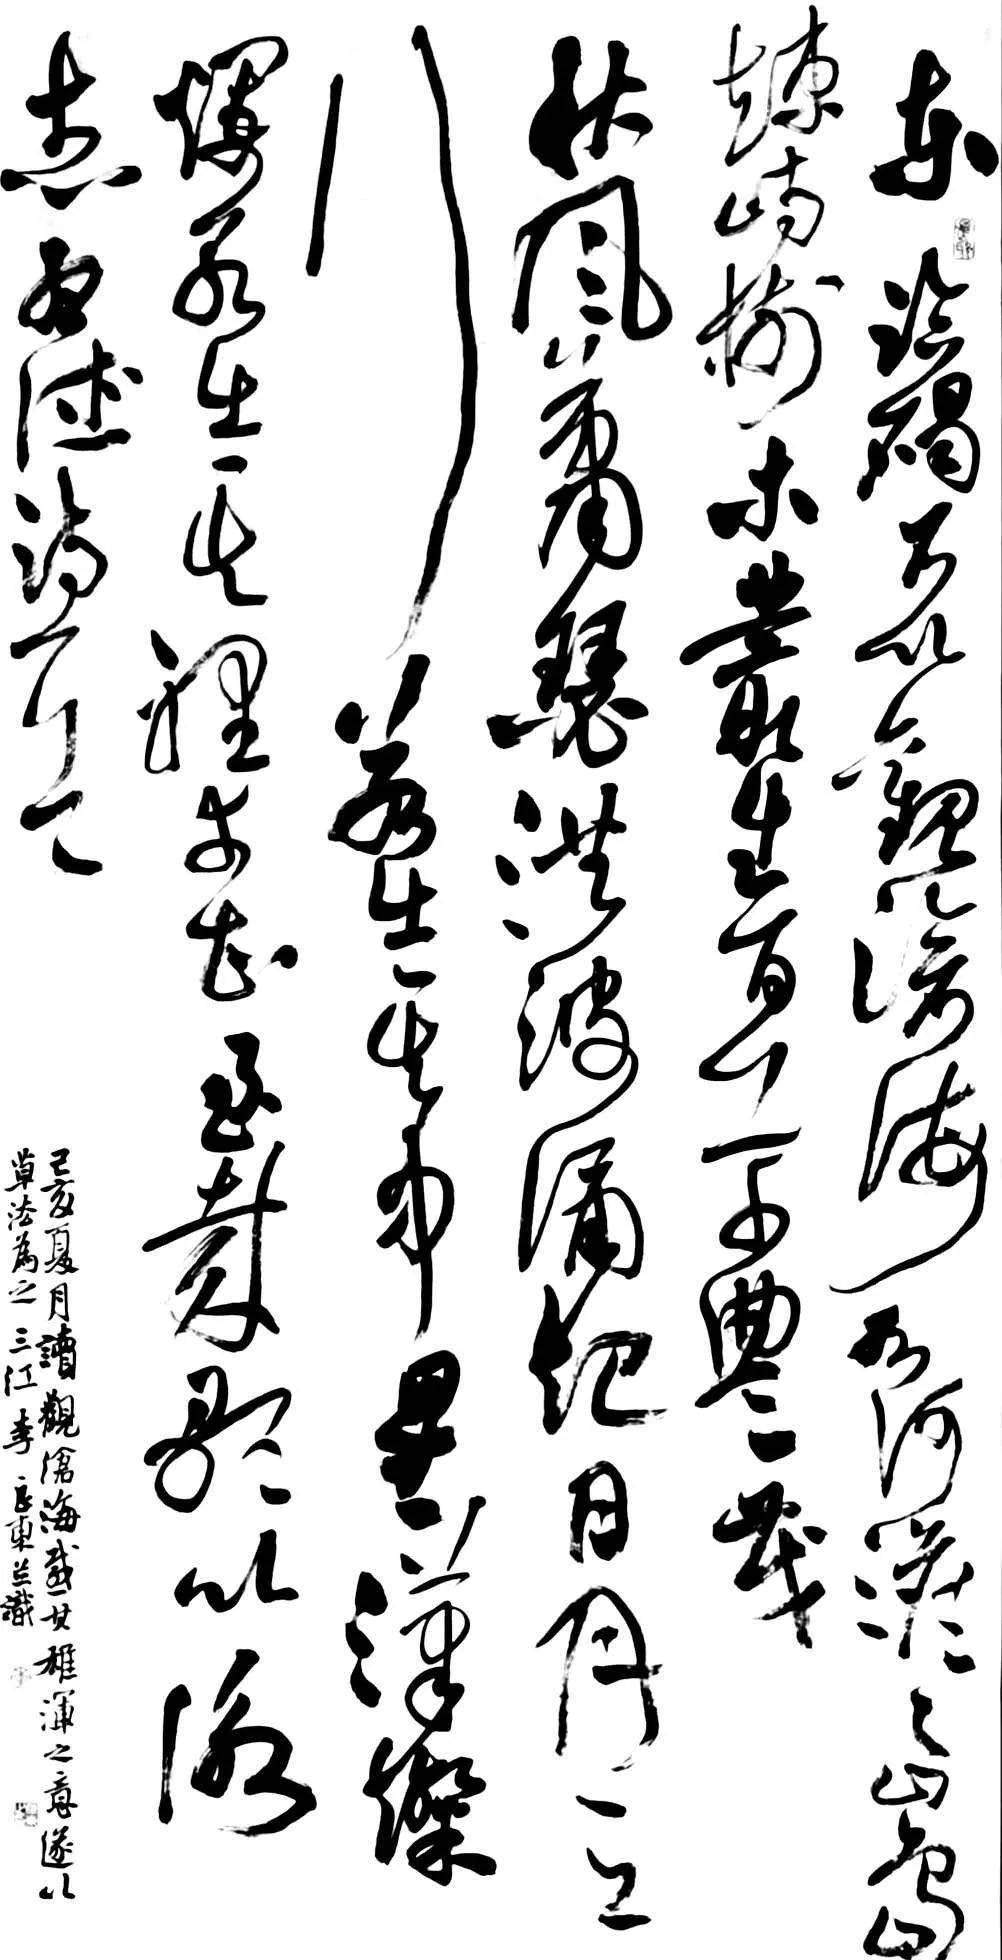 東臨碣石以觀滄海水何澹澹山島
竦峙樹木叢生百草豐茂
秋風蕭瑟洪波涌起日月之
行若出其中星漢燦
爛若出其裡幸甚至哉歌以詠
志 詩
己亥夏月讀觀滄海感其雄渾之意遂以
草法為之三江李良東並識